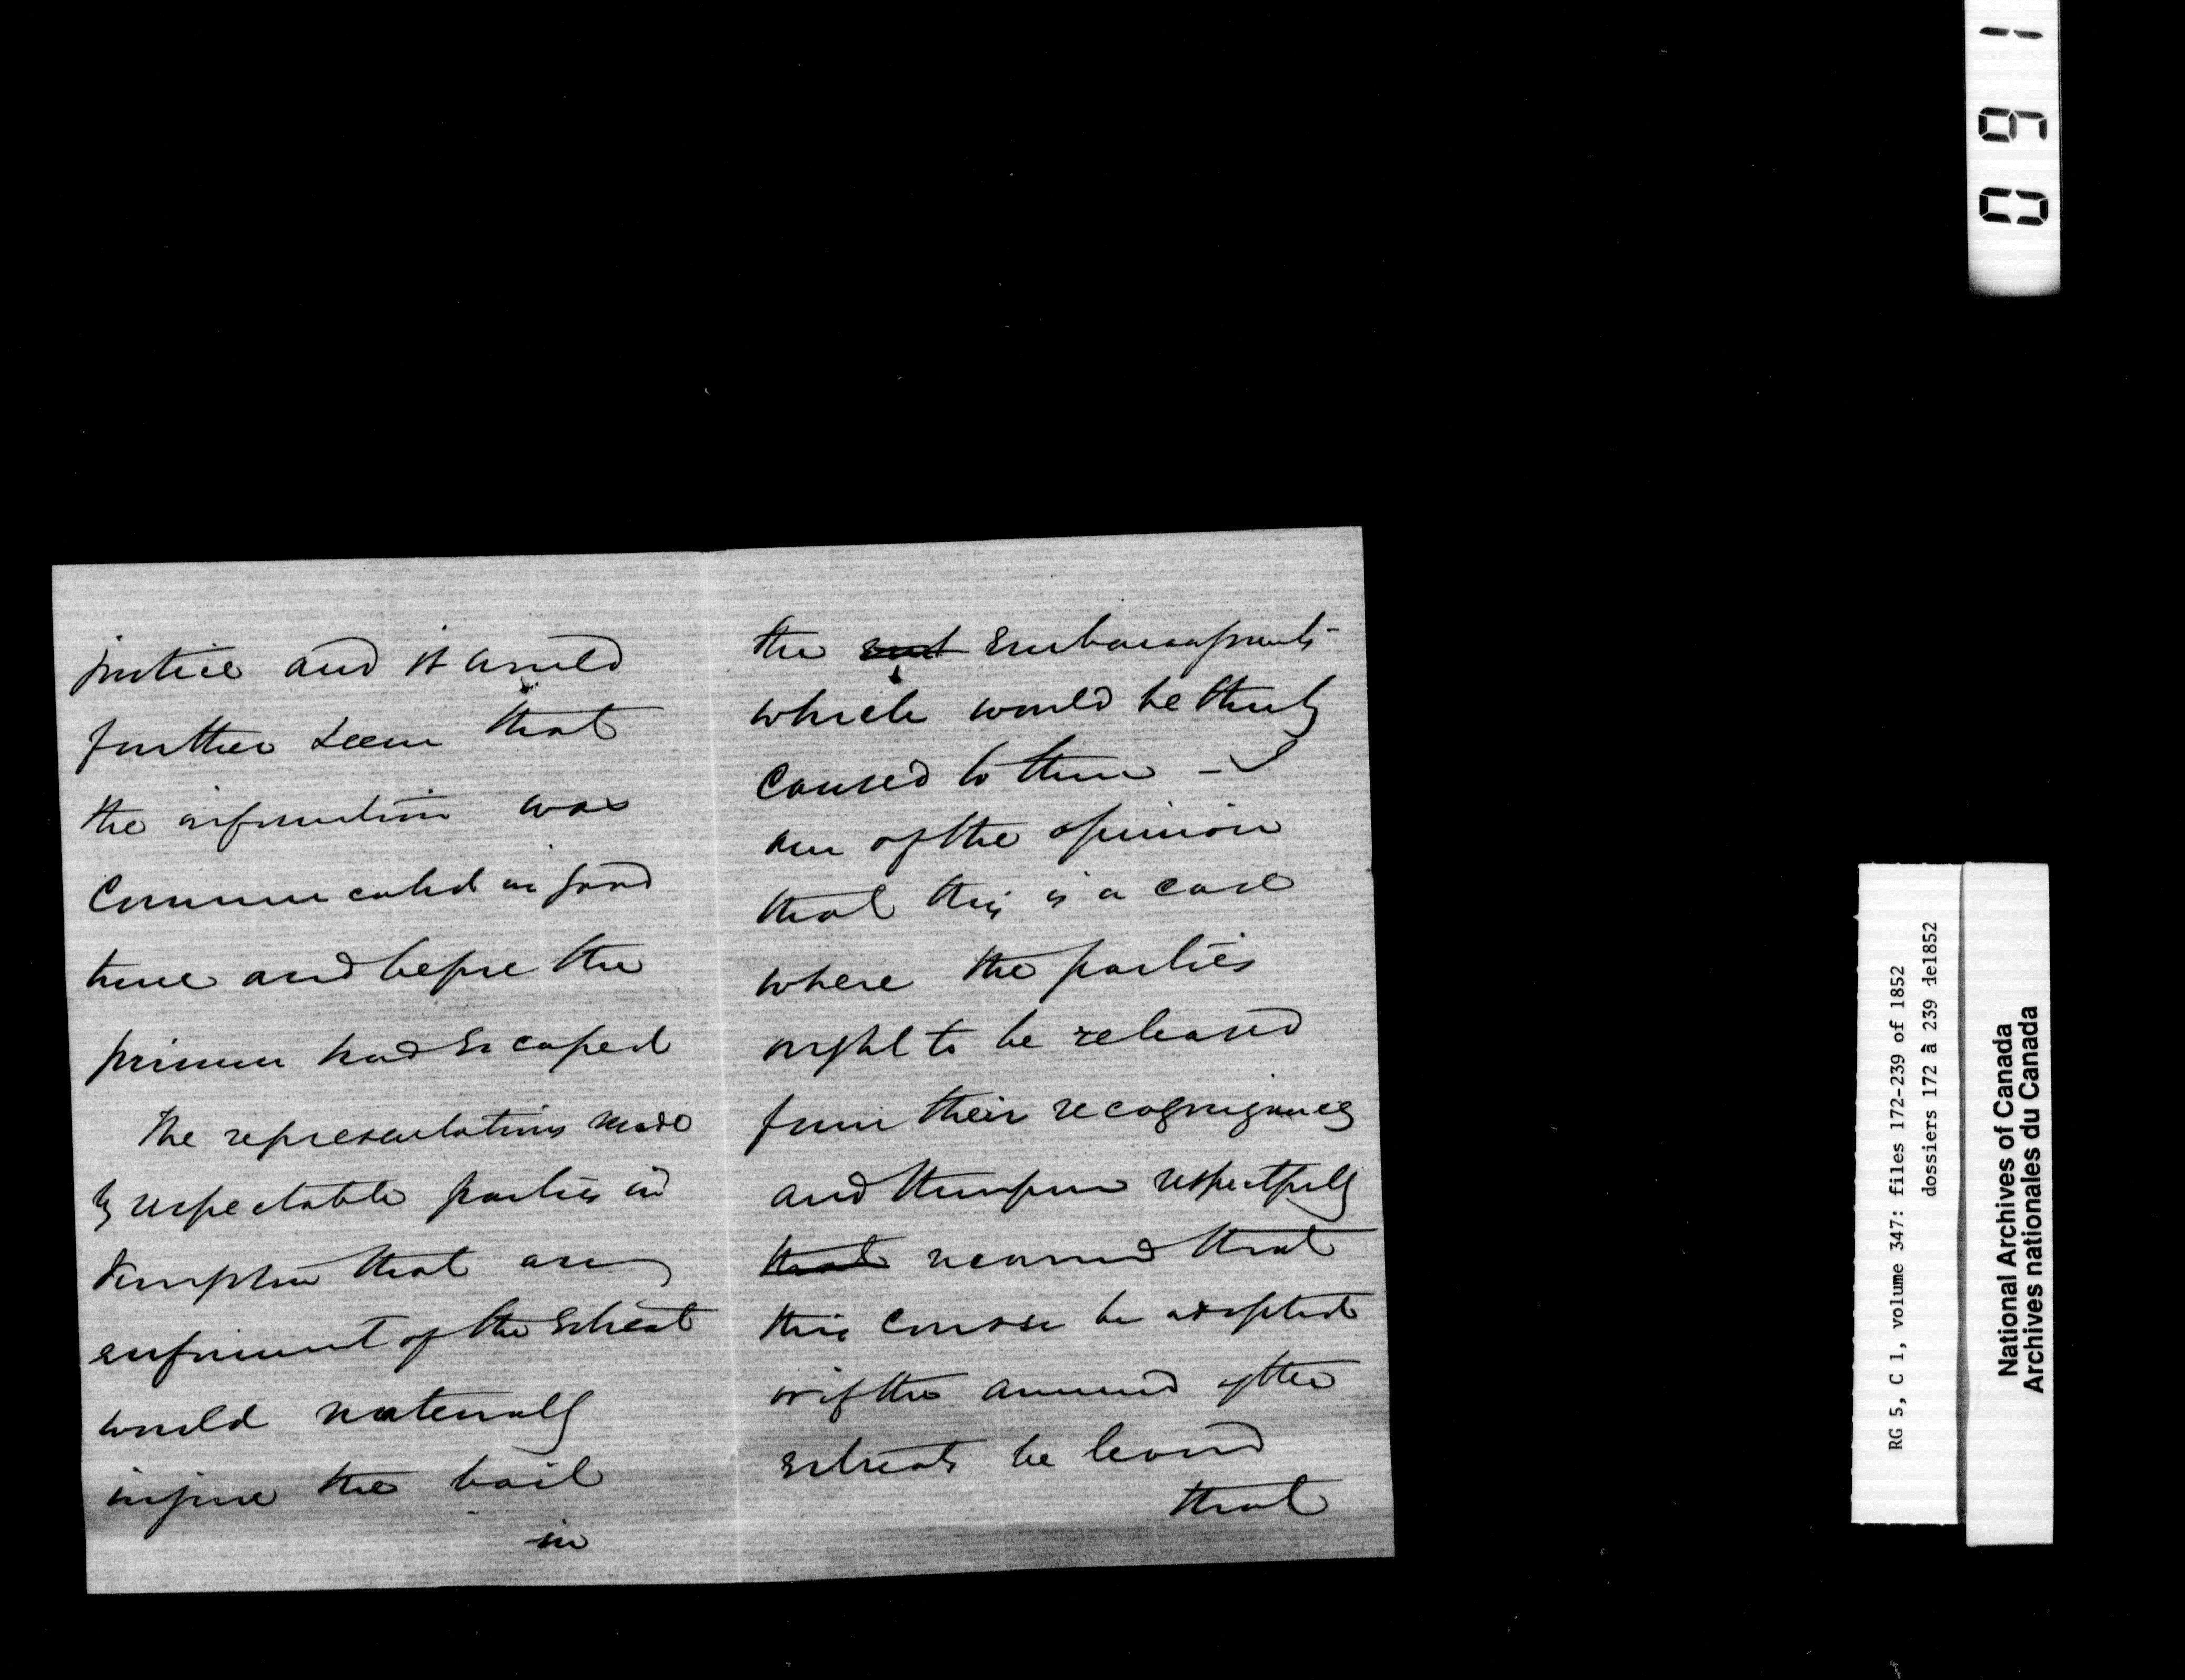 justice and it would
further seem that
the information was
Communicated in good
time and before the
prisoner had Escaped
The representations made
by respectable parties in
that any
enforcement of the Estreat
would materially
injure the bail
in
the Embarrassments
which would be thereby
Caused to them - I
am of the opinion
that this is a case
where the parties
ought to be released
from their recognizances
and therefore respectfully
that recommend that
this Course be adopted
or if the amount of the
Estreats be levied
that
1
6
0
RG 5, C 1, volume 347: files 172-239 of 1852
dossiers 172 à 239 de1852
National Archives of Canada
Archives nationales du Canada